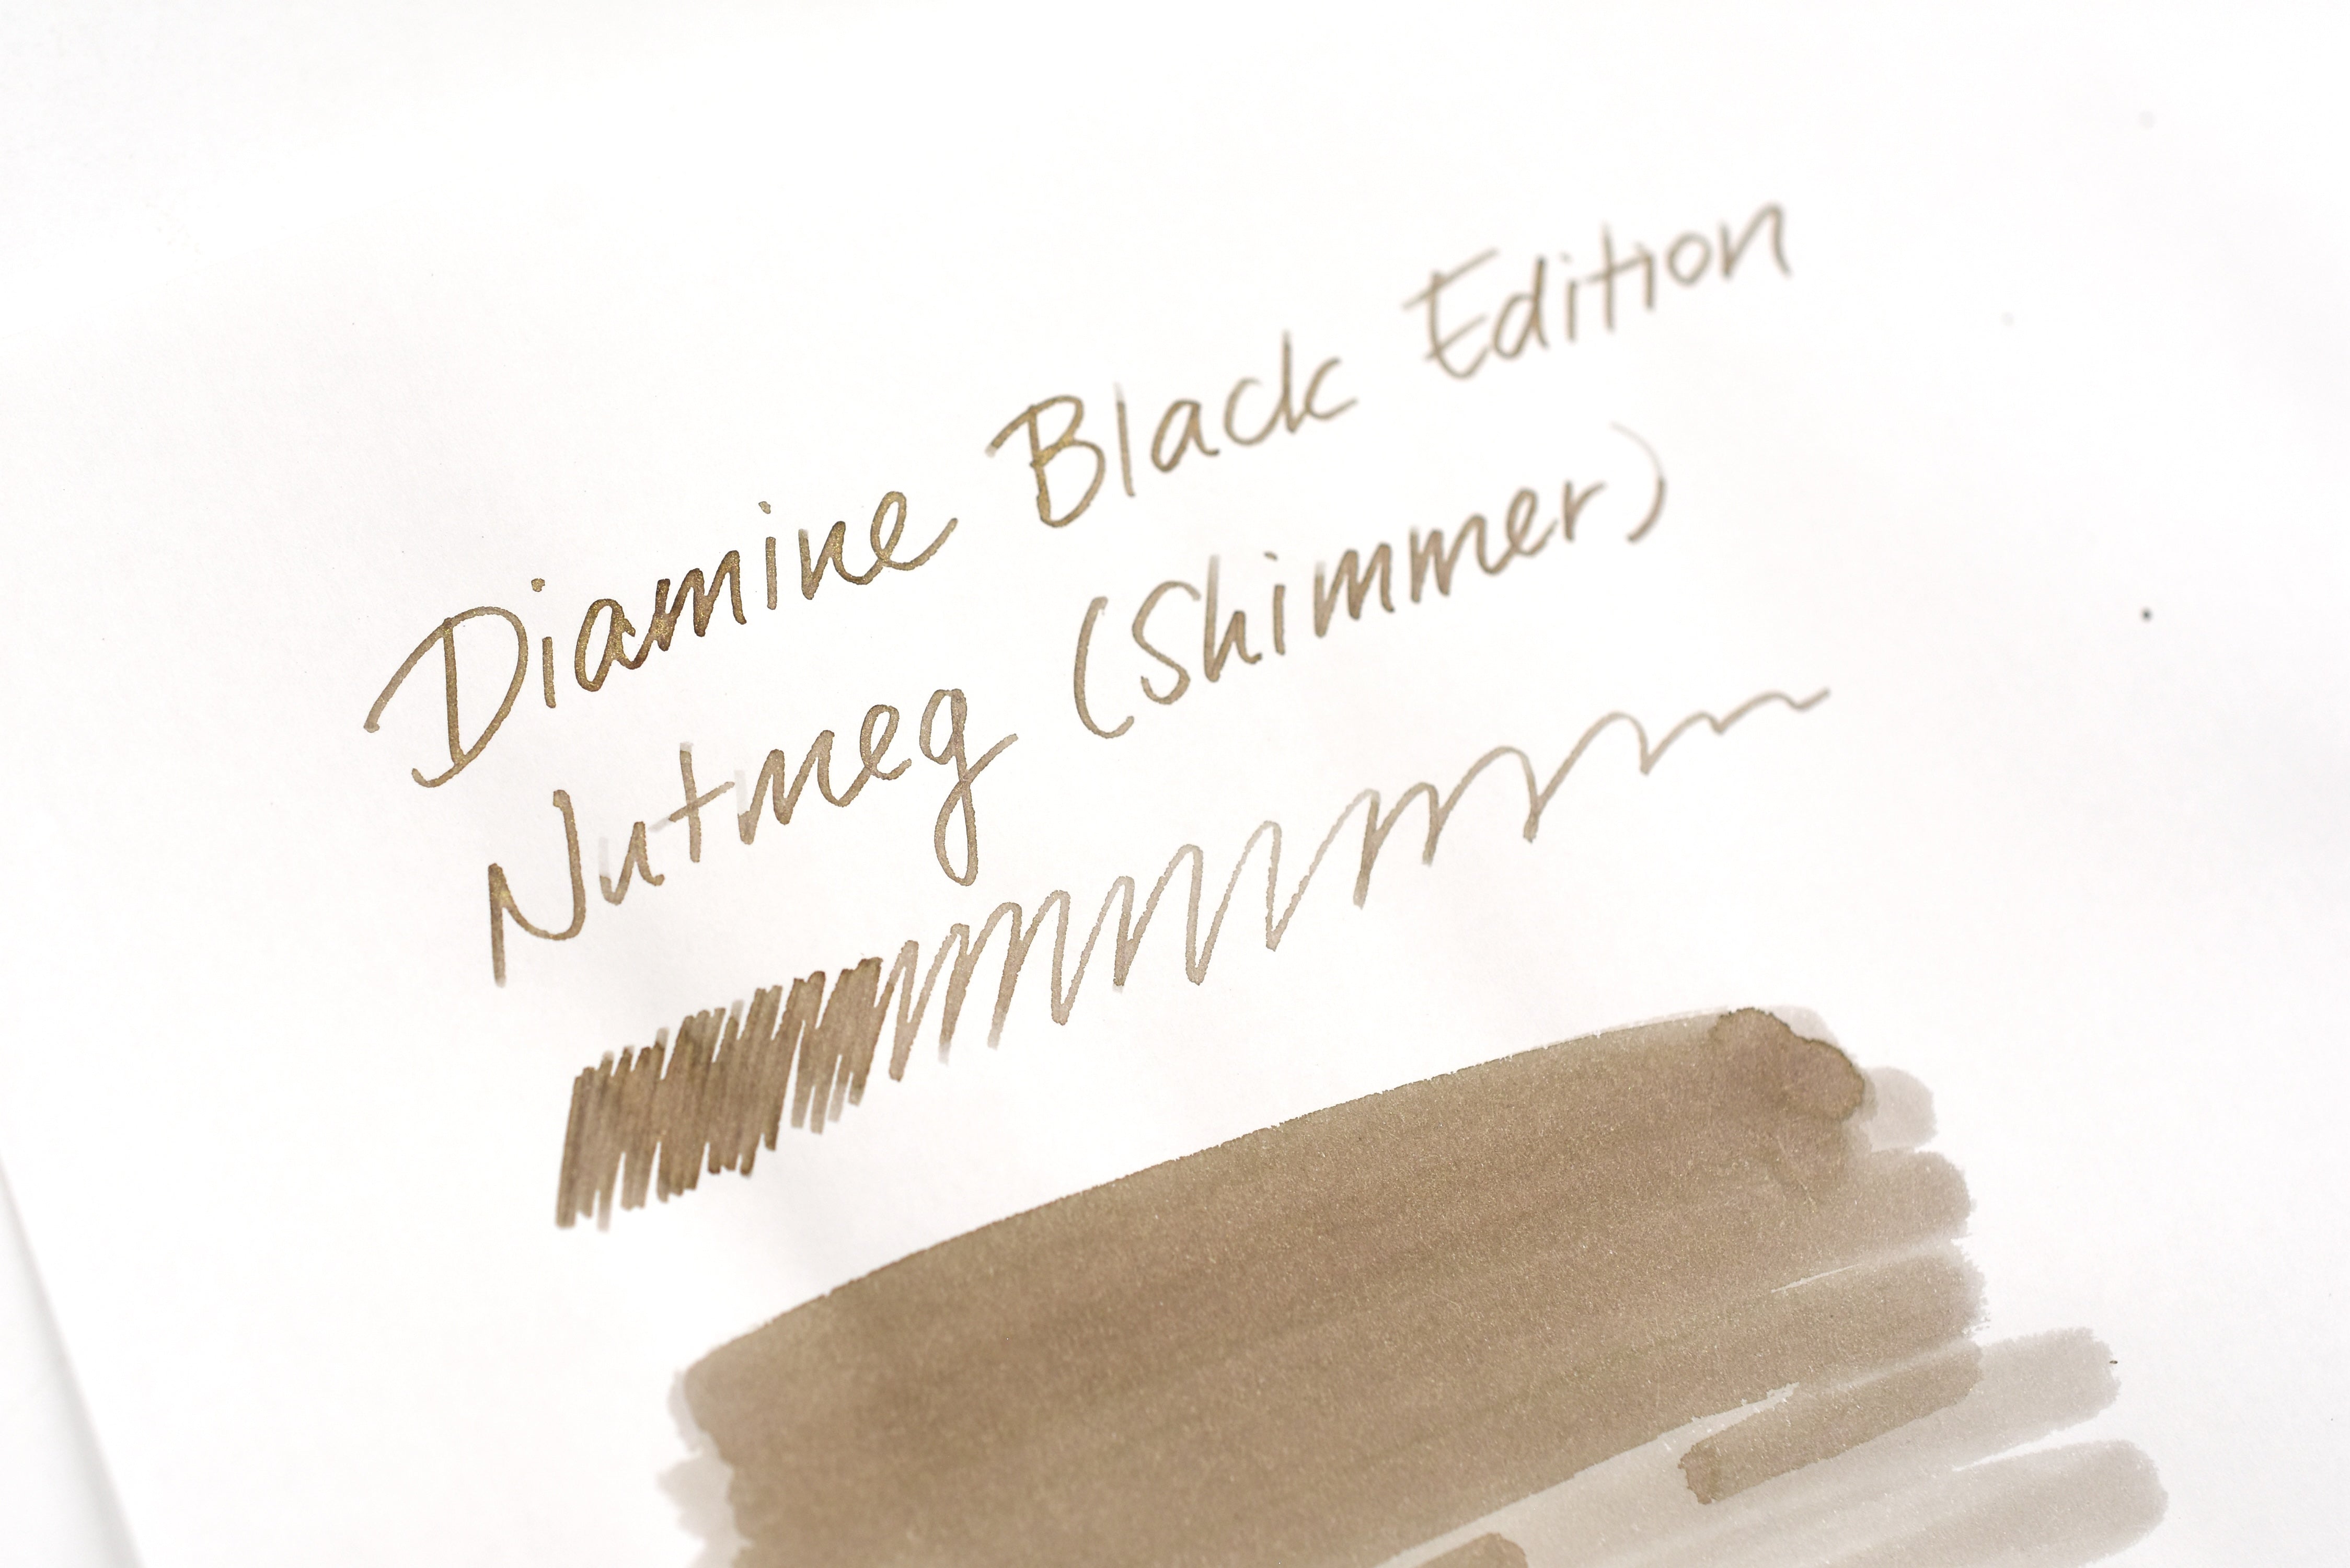 Diamine Black Edition
Nutmeg (Shimmer)